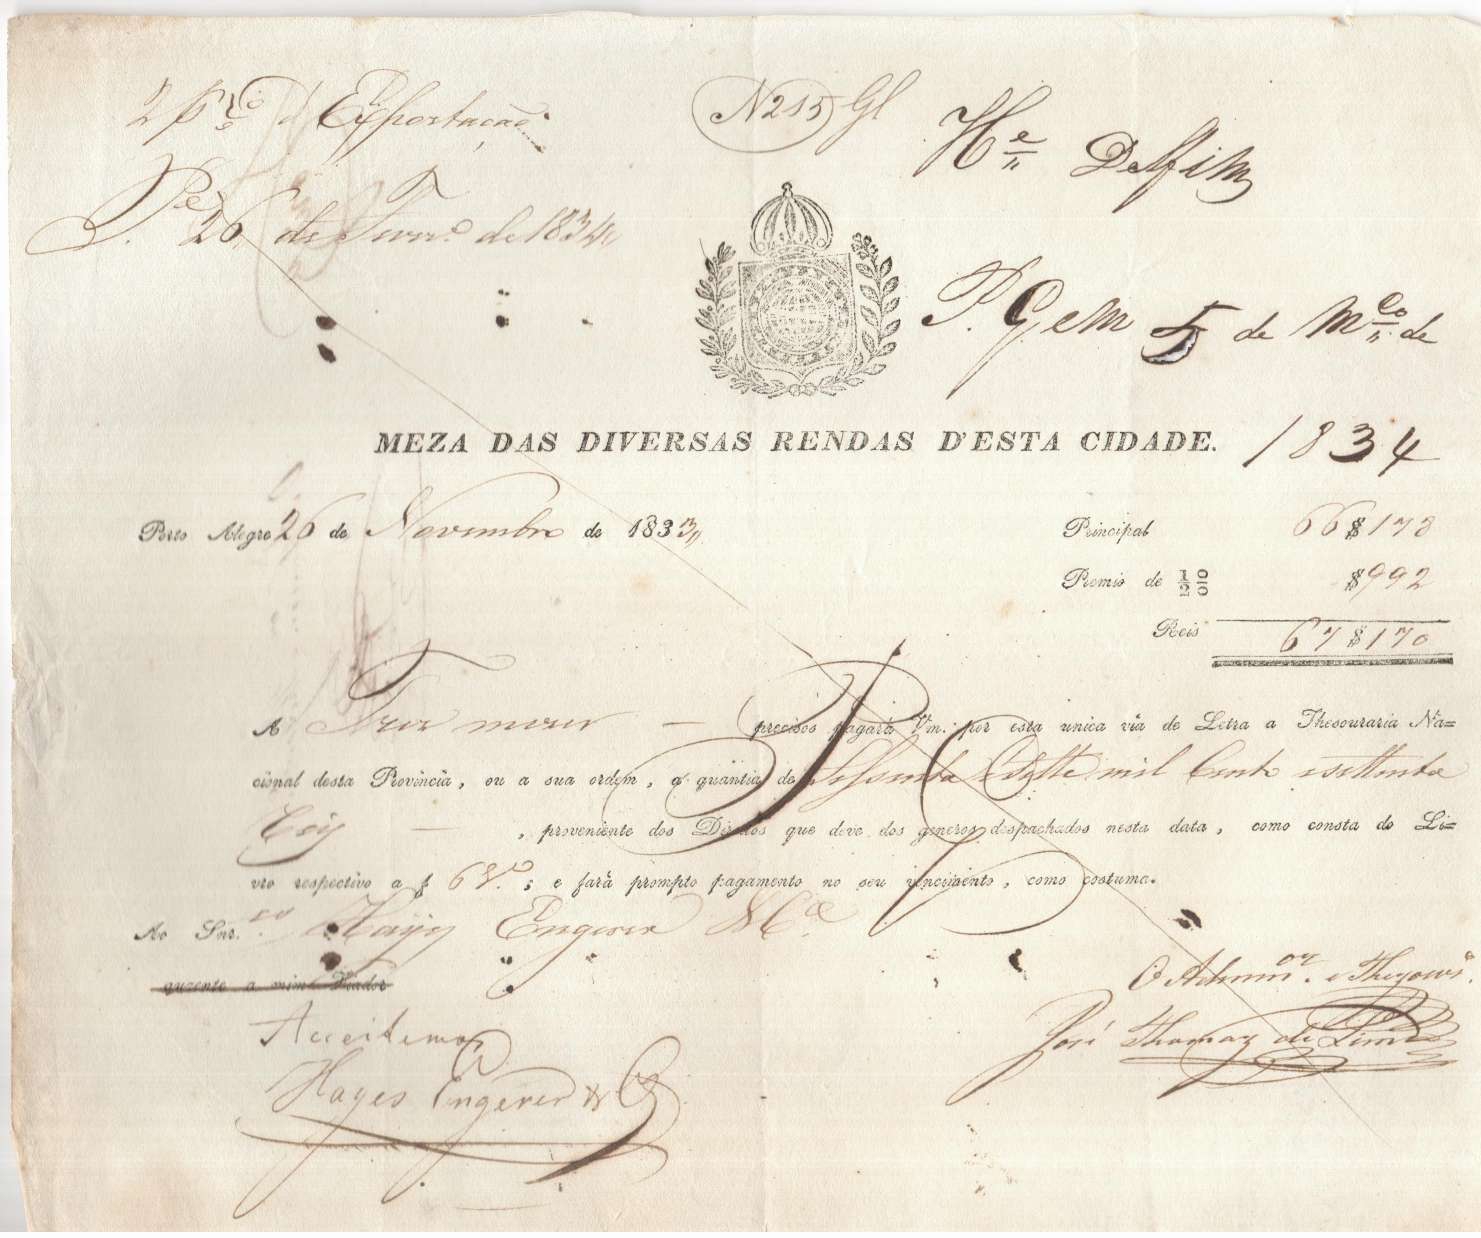 2 p% d'Exportação
N 215 Gl
H.e Delfim
P.e 26 de Fevr.o de 1834
P. G em 5 de M.ço de
1834
MEZA DAS DIVERSAS RENDAS D'ESTA CIDADE.
Porto Alegre 26 de Novembro de 1833
Principal 66$178
Premio de ½ % $992
Reis 67$170
A Trez mezes — precisos pagará Vm. por esta unica via de Letra a Thesouraria Na=
cional desta Provincia, ou a sua ordem, a quantia de Sessenta e Sette mil Cento e settenta
reis — , proveniente dos Direitos que deve dos generos despachados nesta data, como consta do Li=
vro respectivo a f 6 v.o ; e fará prompto pagamento no seu vencimento, como costuma.
Ao Snr.es Hays Engerer & C.a
O Admin.or e Thezour.o
José Thomaz de Lima
Acceitemos
Hayes Engerer & C